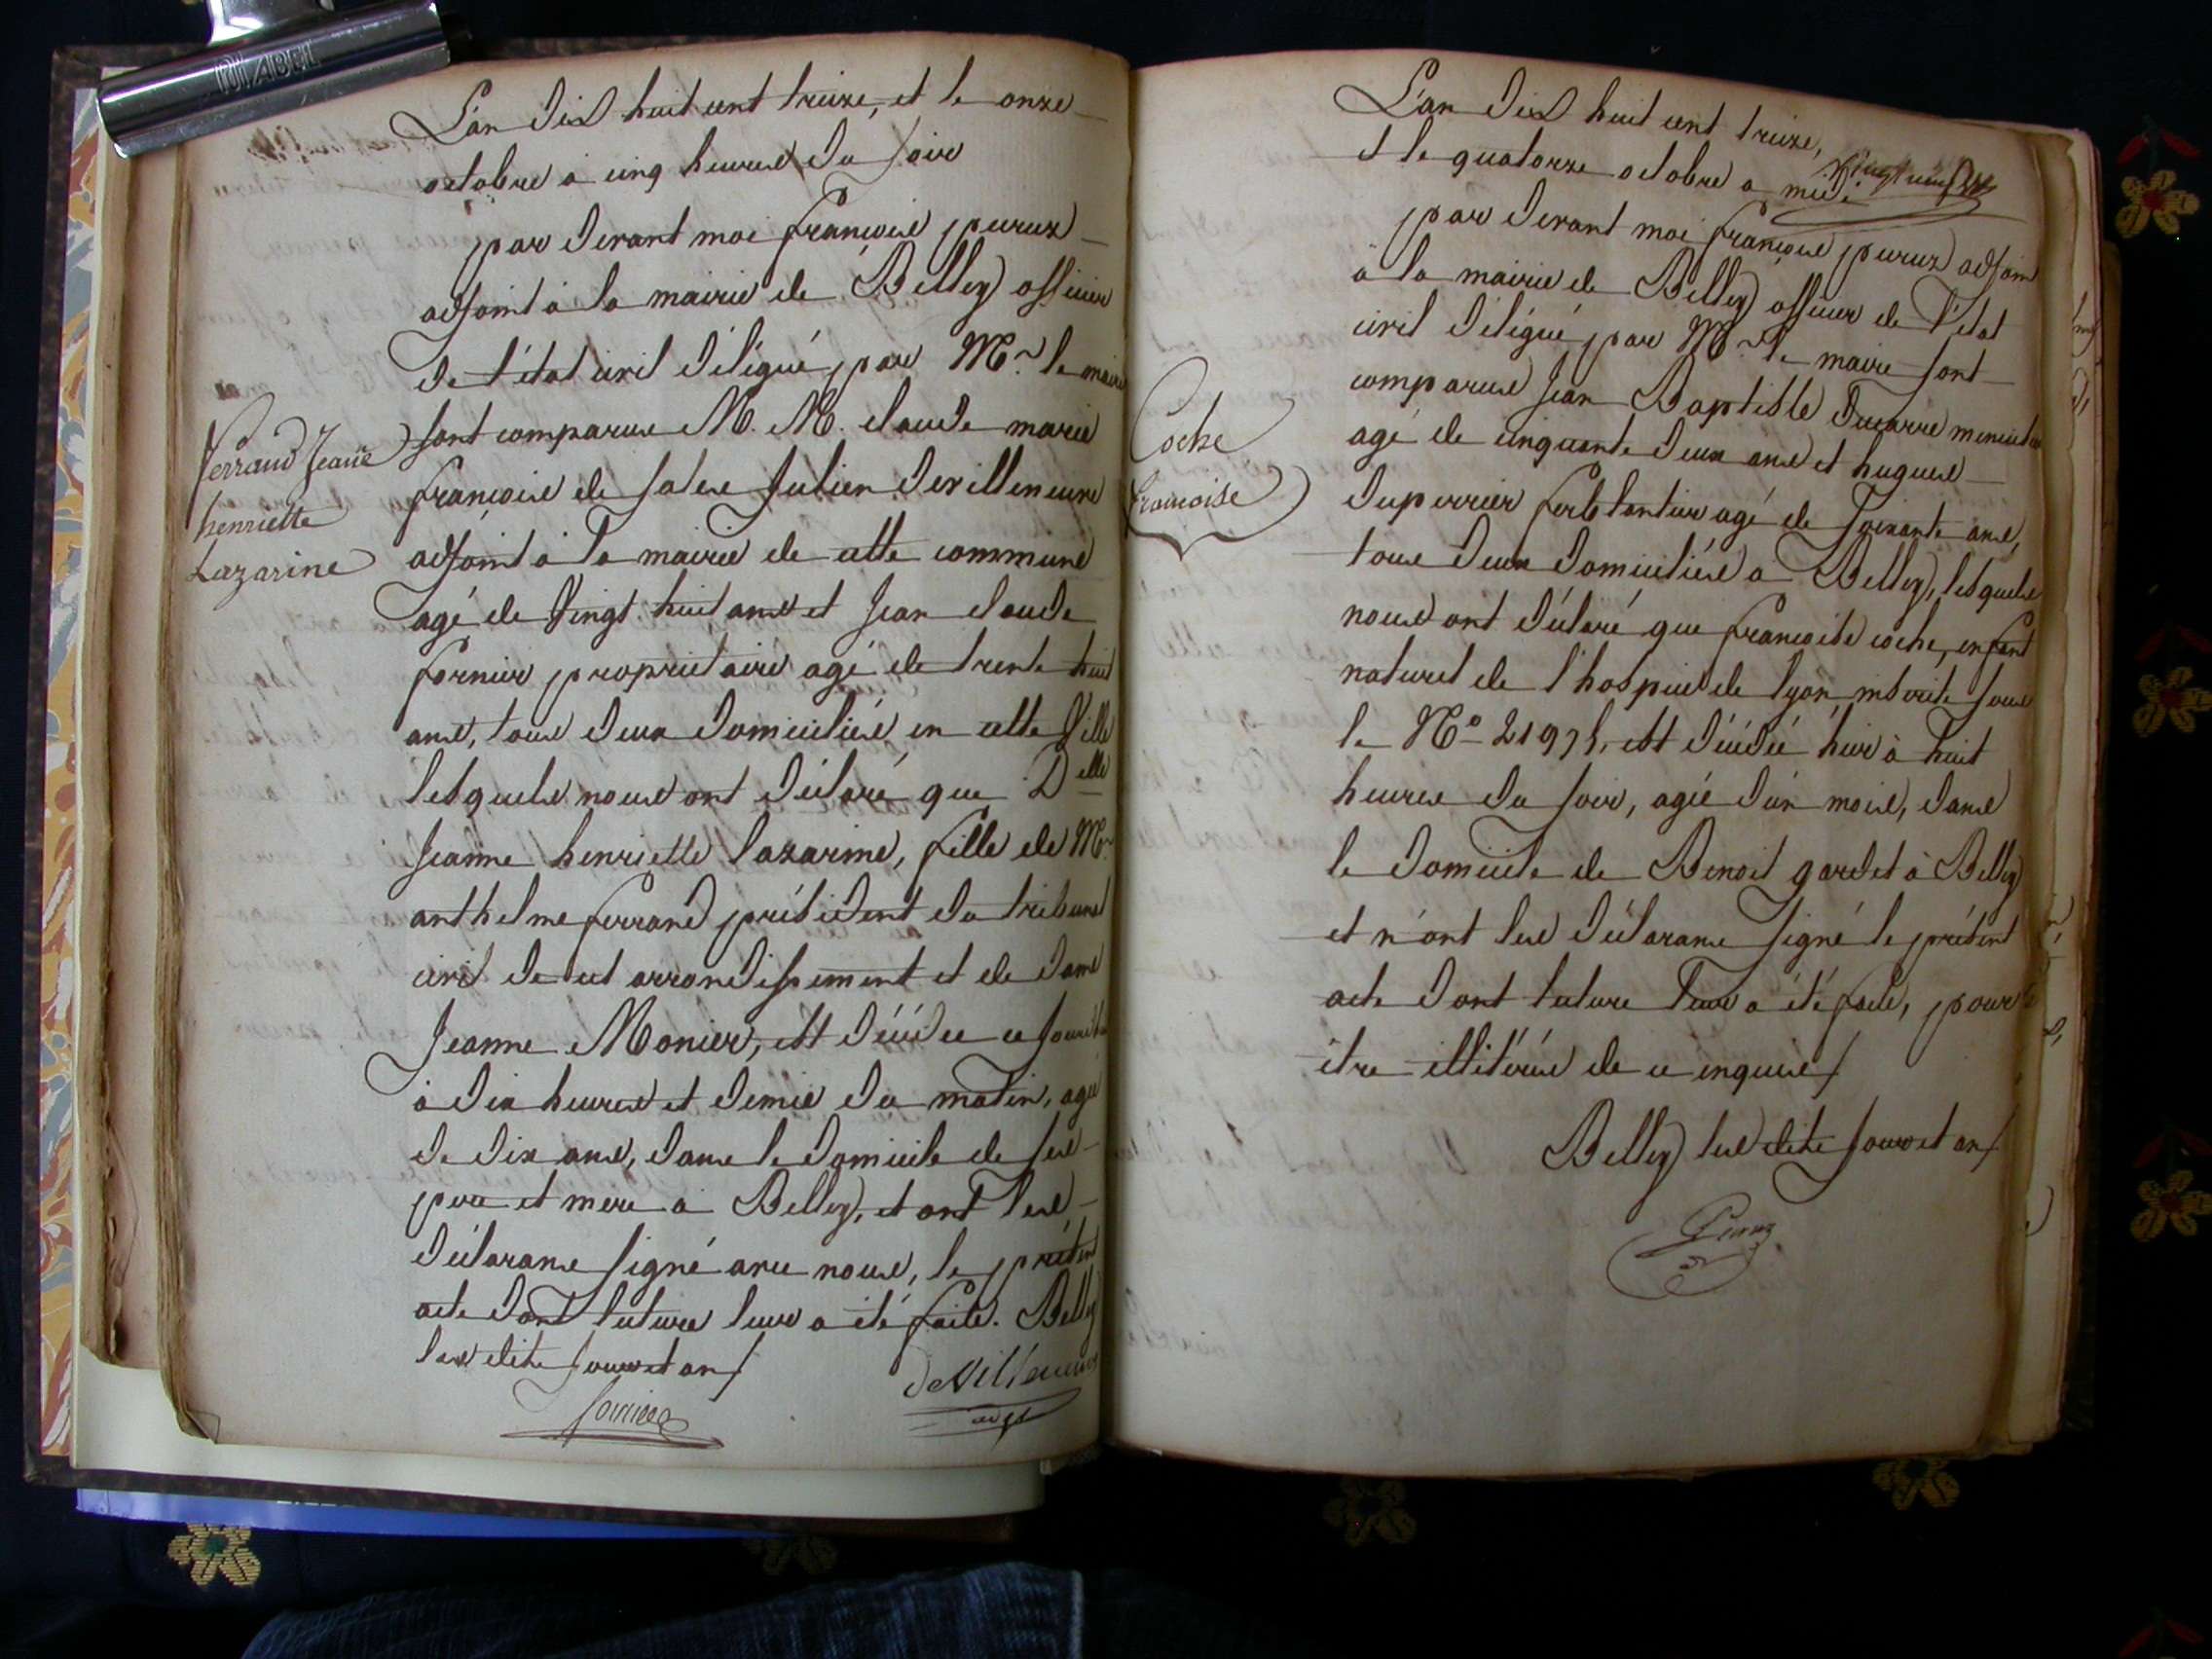 DIABEL
L'an dix huit cent treize, et le onze
octobre à cinq heures du soir
par devant moi françois peruz
adjoint à la mairie de Belley officier
de l'état civil délégué par Mr. le maire
sont comparus M. M. claude marie
françois de sales Julien devilleneuve
adjoint à la mairie de cette commune
agé de vingt huit ans et Jean claude
fornier propriétaire agé de trente huit
ans, tous deux domiciliés en cette ville
lesquels nous ont déclaré que Delle
Jeanne henriette lazarine, fille de Mr.
anthelme ferrand président du tribunal
civil de cet arrondissement et de dame
Jeanne Monier, est décédée ce jourd'hui
à dix heures et demie du matin, agée
de dix ans, dans le domicile de ses
pere et mere à Belley, et ont les
déclarans signé avec nous, le présent
acte dont lecture leur a été faite. Belley
les dits jour et an
fornier
deVilleneuve
adjt
ferraud Jeane
henriette
Lazarine
L'an dix huit cent treize,
et le quatorze octobre a midi
par devant moi françois peruz adjoint
à la mairie de Belley officier de l'état
civil délégué par Mr. le maire sont
comparus Jean Baptiste Ducarre menuisier
agé de cinquante deux ans et hugues
duperrier ferblantier agé de soixante ans,
tous deux domiciliés à Belley, lesquels
nous ont déclaré que françoise coche, enfant
naturel de l'hospice de lyon, inscrite sous
le No. est décédée hier à huit
heures du soir, agée d'un mois, dans
le domicile de Benoit gardet à Belley
et n'ont les déclarans signé le présent
acte dont lecture leur a été faite, pour
être illitérés de ce enquis
Belley les dits jour et an
Peruz
Coche
françoise